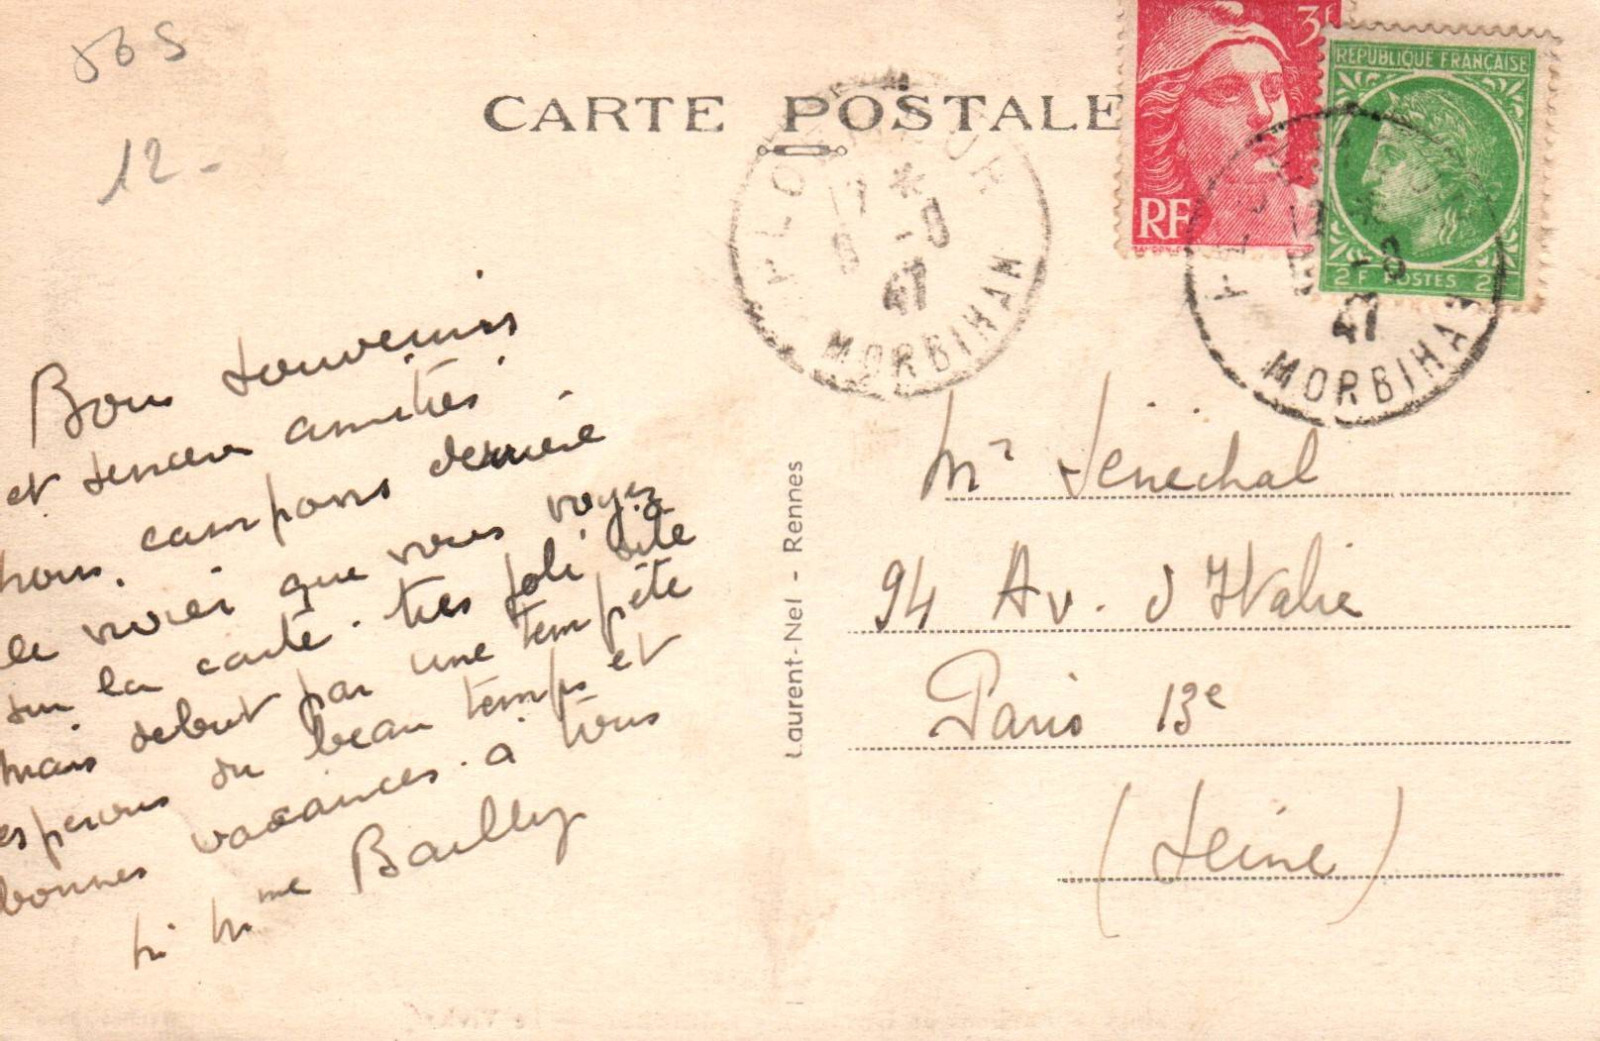 565
12-
CARTE POSTALE
3F
RF
REPUBLIQUE FRANÇAISE
2F POSTES 2F
17 *
8 -8
47
MORBIHAN
-8
47
MORBIHAN
Bons souvenirs
et sincères amitiés
nous campons derrière
le que vous voyez
sur la carte. très joli site
mais debut par une tempête
esperons du beau temps et
bonnes vacances. à tous
Mme Bailly
Laurent-Nel - Rennes
Mr Sénéchal
94 Av. d'Italie
Paris 13e
(Seine)